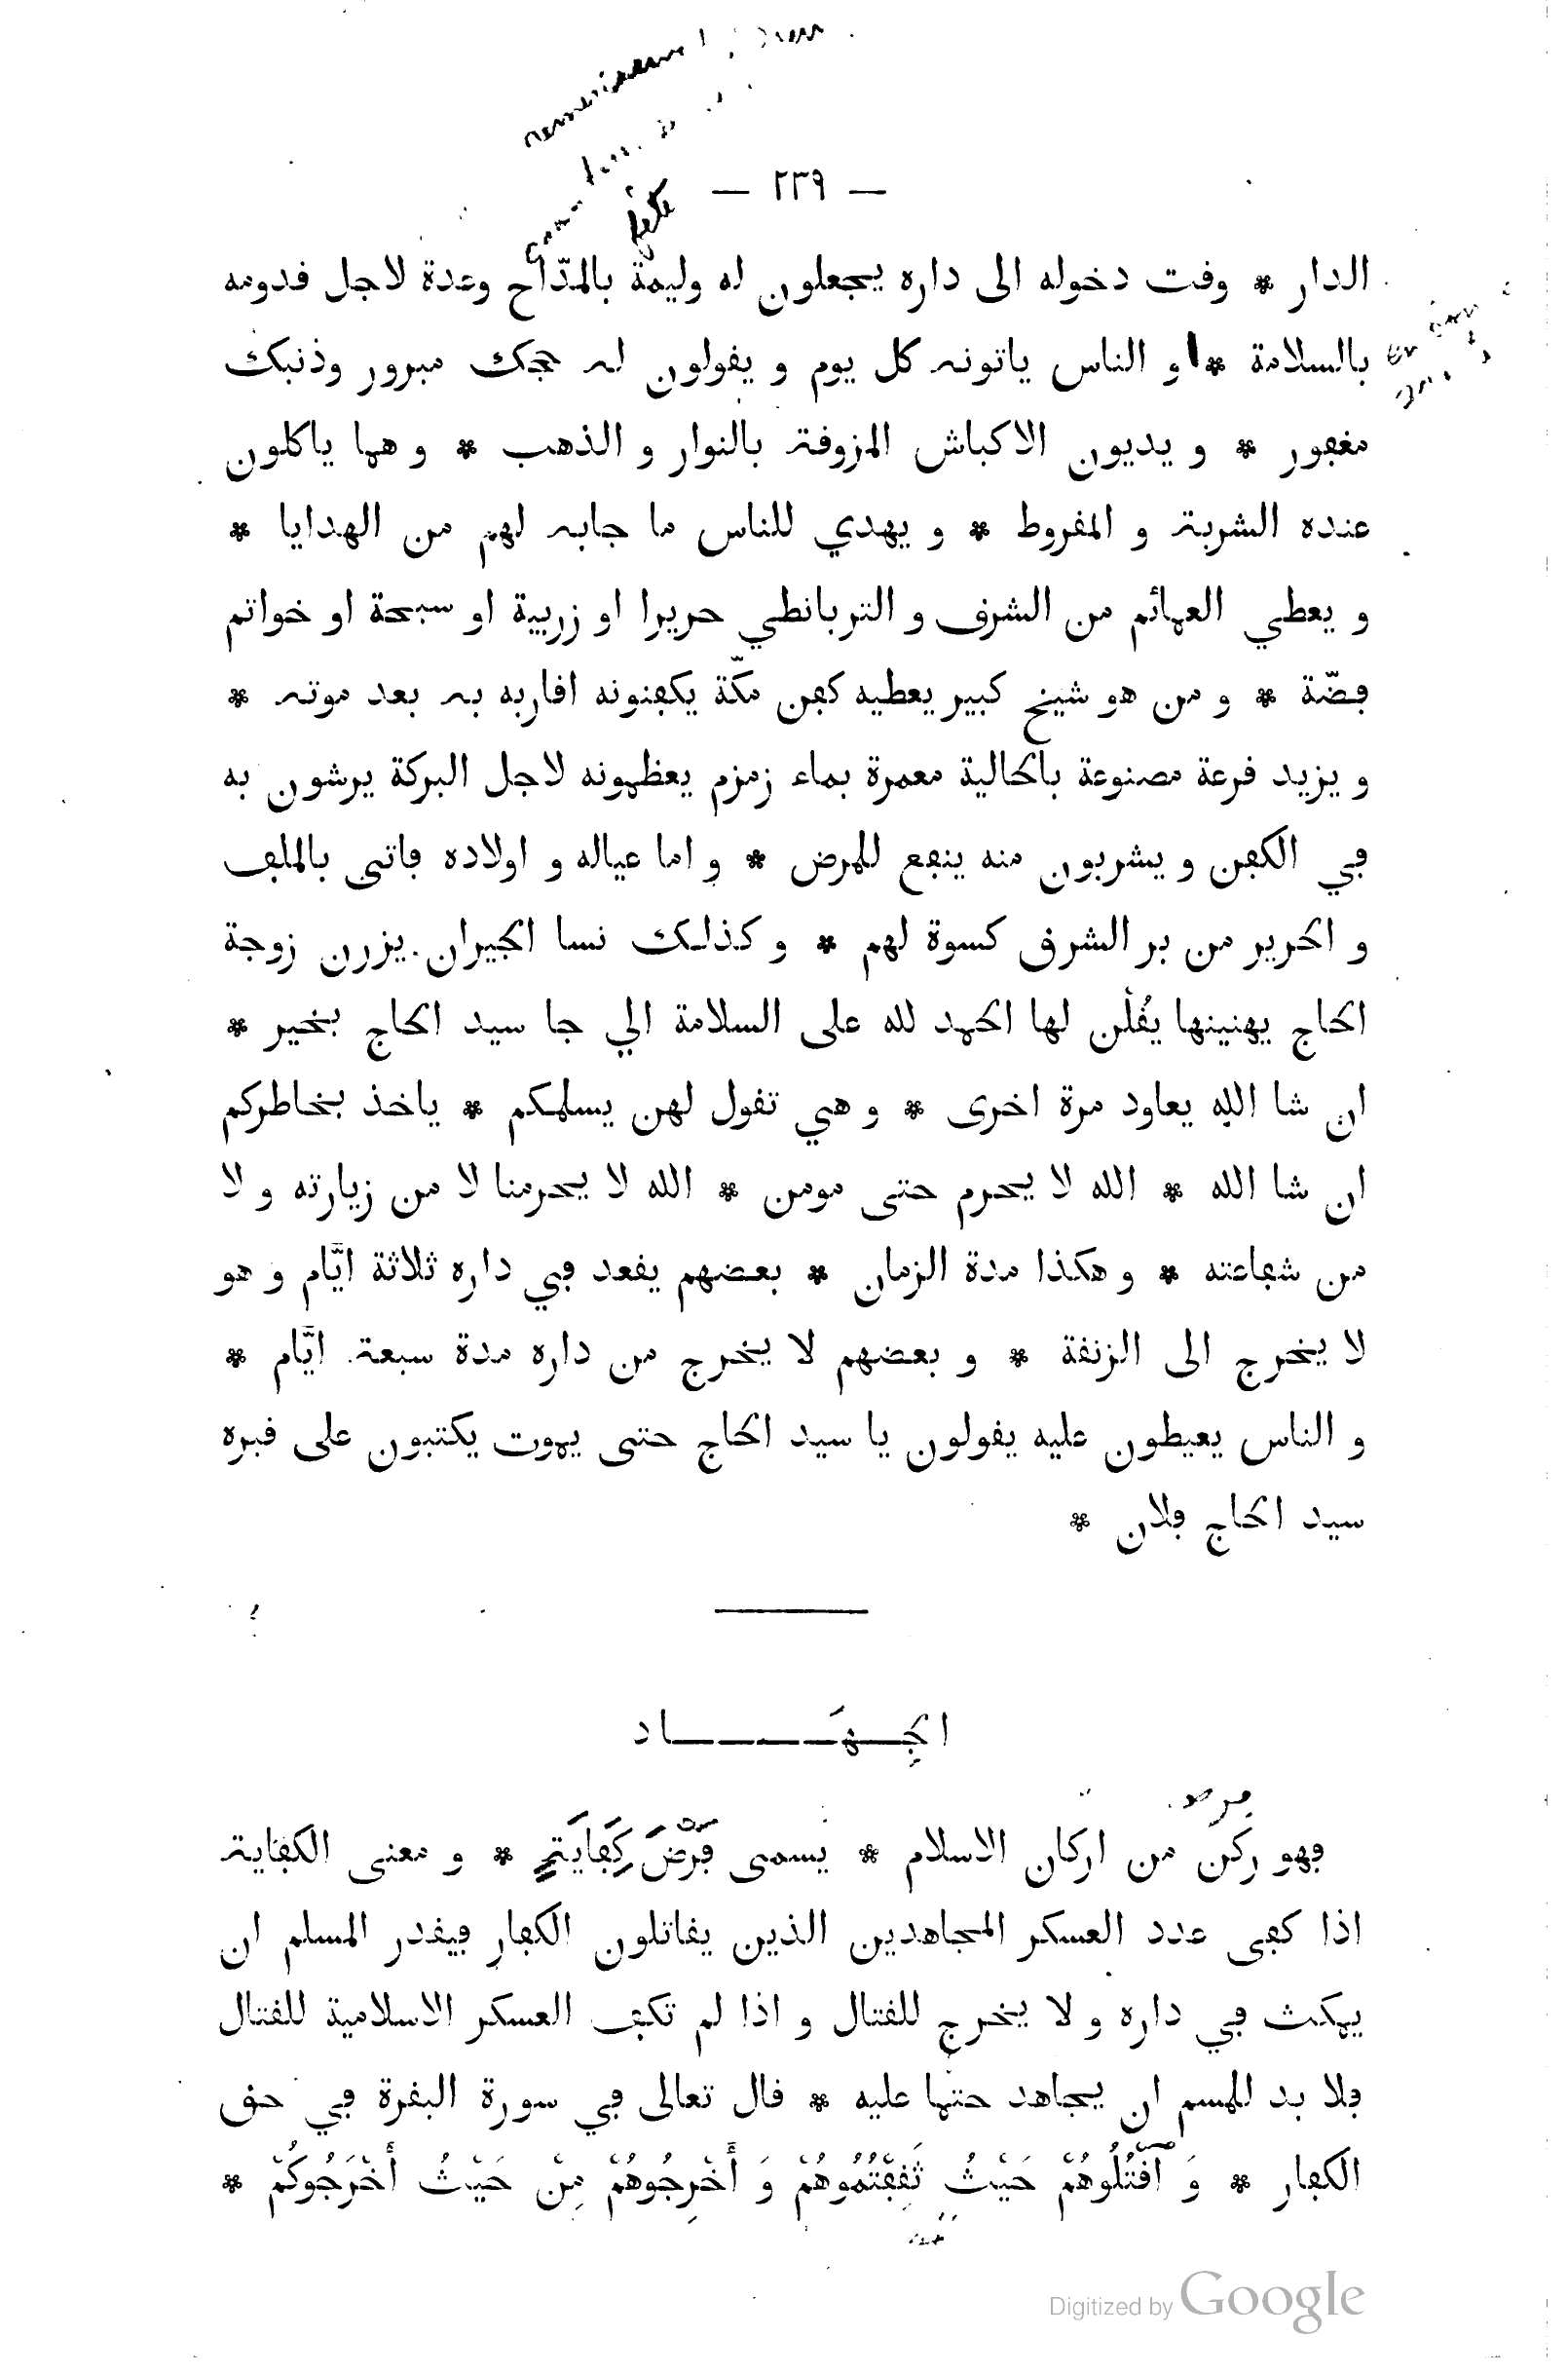 fête
— ٢٣٩ —
الدار * وقت دخوله الى داره يجعلون له وليمة بالمدّاح وعدة لاجل قدومه
بالسلامة * و الناس ياتونه كل يوم و يقولون له حجك مبرور وذنبك
مغفور * و يديون الاكباش المزوقة بالنوار و الذهب * و هما ياكلون
عنده الشربة و المقروط * و يهدي للناس ما جابه لهم من الهدايا *
و يعطي العمائم من الشرق و التربانطي حريرا او زربية او سبحة او خواتم
فضّة * و من هو شيخ كبير يعطيه كفن مكّة يكفنونه اقاربه به بعد موته *
و يزيد قرعة مصنوعة بالحالية معمرة بماء زمزم يعظمونه لاجل البركة يرشون به
في الكفن و يشربون منه ينفع للمرض * و اما عياله و اولاده فاتى بالملف
و الحرير من بر الشرق كسوة لهم * و كذلك نسا الجيران يزرن زوجة
الحاج يهنينها يقُلْن لها الحمد لله على السلامة الي جا سيد الحاج بخير *
ان شا الله يعاود مرة اخرى * و هي تقول لهن يسلمكم * ياخذ بخاطركم
ان شا الله * الله لا يحرم حتى مومن * الله لا يحرمنا لا من زيارته و لا
من شفاعته * و هكذا مدة الزمان * بعضهم يقعد في داره ثلاثة ايَّام و هو
لا يخرج الى الزنقة * و بعضهم لا يخرج من داره مدة سبعة ايَّام *
و الناس يعيطون عليه يقولون يا سيد الحاج حتى يموت يكتبون على قبره
سيد الحاج فلان *
الجِـهَـــــاد
فرض
فهو ركن من اركان الاسلام * يسمى فَرْضَ كِفَايَةٍ * و معنى الكفاية
اذا كفى عدد العسكر المجاهدين الذين يقاتلون الكفار فيقدر المسلم ان
يمكث في داره و لا يخرج للقتال و اذا لم تكف العسكر الاسلامية للقتال
فلا بد للمسم ان يجاهد حتما عليه * قال تعالى في سورة البقرة في حق
الكفار * وَ ٱقْتُلُوهُمْ حَيْثُ ثَقِفْتُمُوهُمْ وَ أَخْرِجُوهُمْ مِنْ حَيْثُ أَخْرَجُوكُمْ *
Digitized by Google